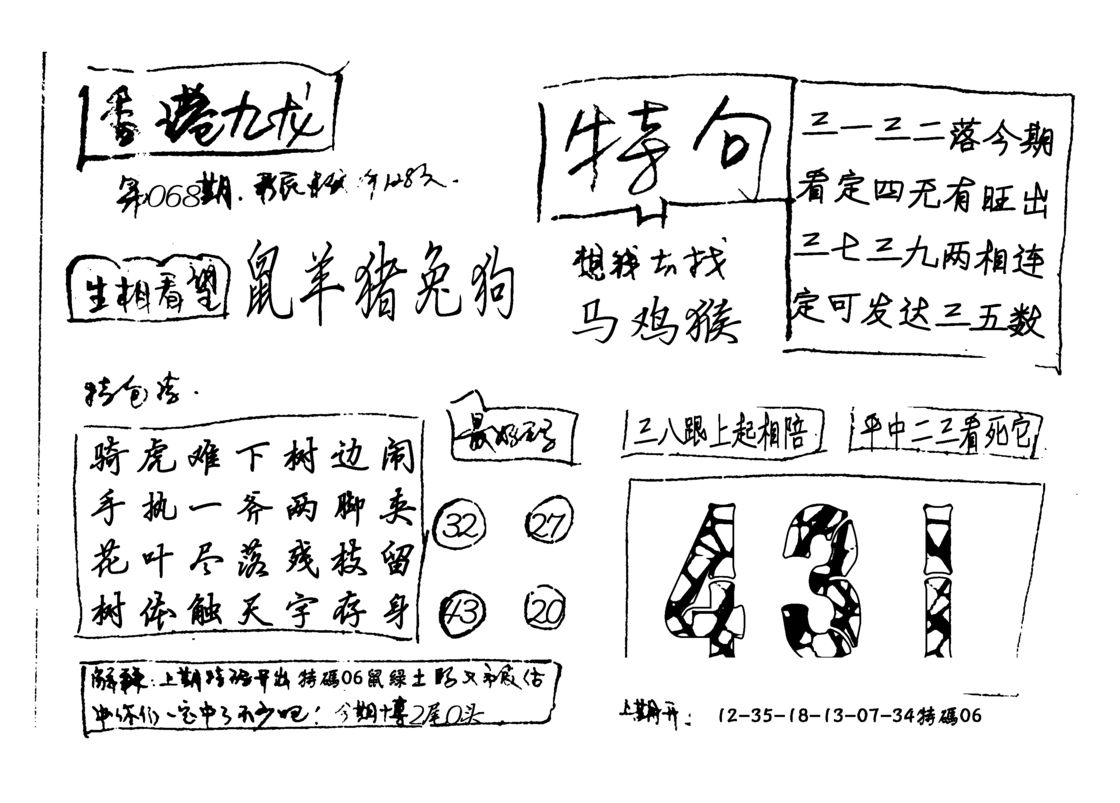 香港九龙
第068期.
生相看望
鼠羊猪兔狗
特句
想钱去找
马鸡猴
三一三二落今期
看定四无有旺出
三七三九两相连
定可发达三五数
特包诗.
骑虎难下树边闹
手执一斧两脚夹
花叶尽落残枝留
树体触天字存身
最好玄号
32 27
43 20
三八跟上起相陪
平中二三看死它
431
解释:上期特码开出特碼06鼠绿土
中你们一定中了不少吧!今期十專2尾0头
上期开: 12-35-18-13-07-34特碼06